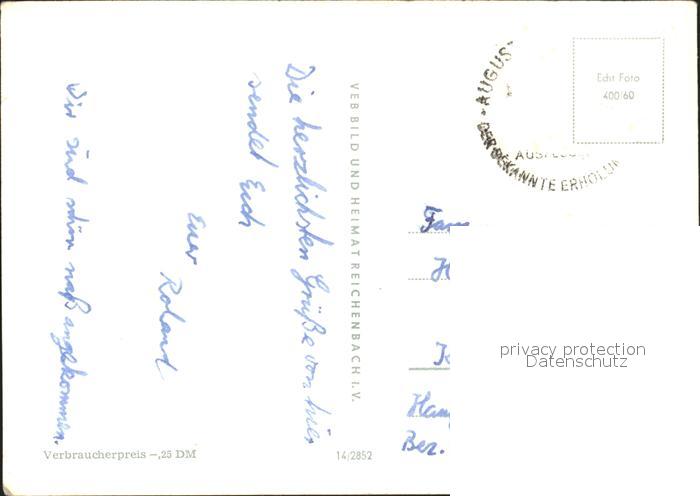 Die herzlichsten Grüße von hier
sendet Euch
Euer
Roland
Wir sind schön naß angekommen.
VEB BILD UND HEIMAT REICHENBACH i.V.
Verbraucherpreis –,25 DM
14/2852
AUGUS
DER BEKANNTE ERHOLUN
Echt Foto
400/60
Fam
Bez.
privacy protection
Datenschutz